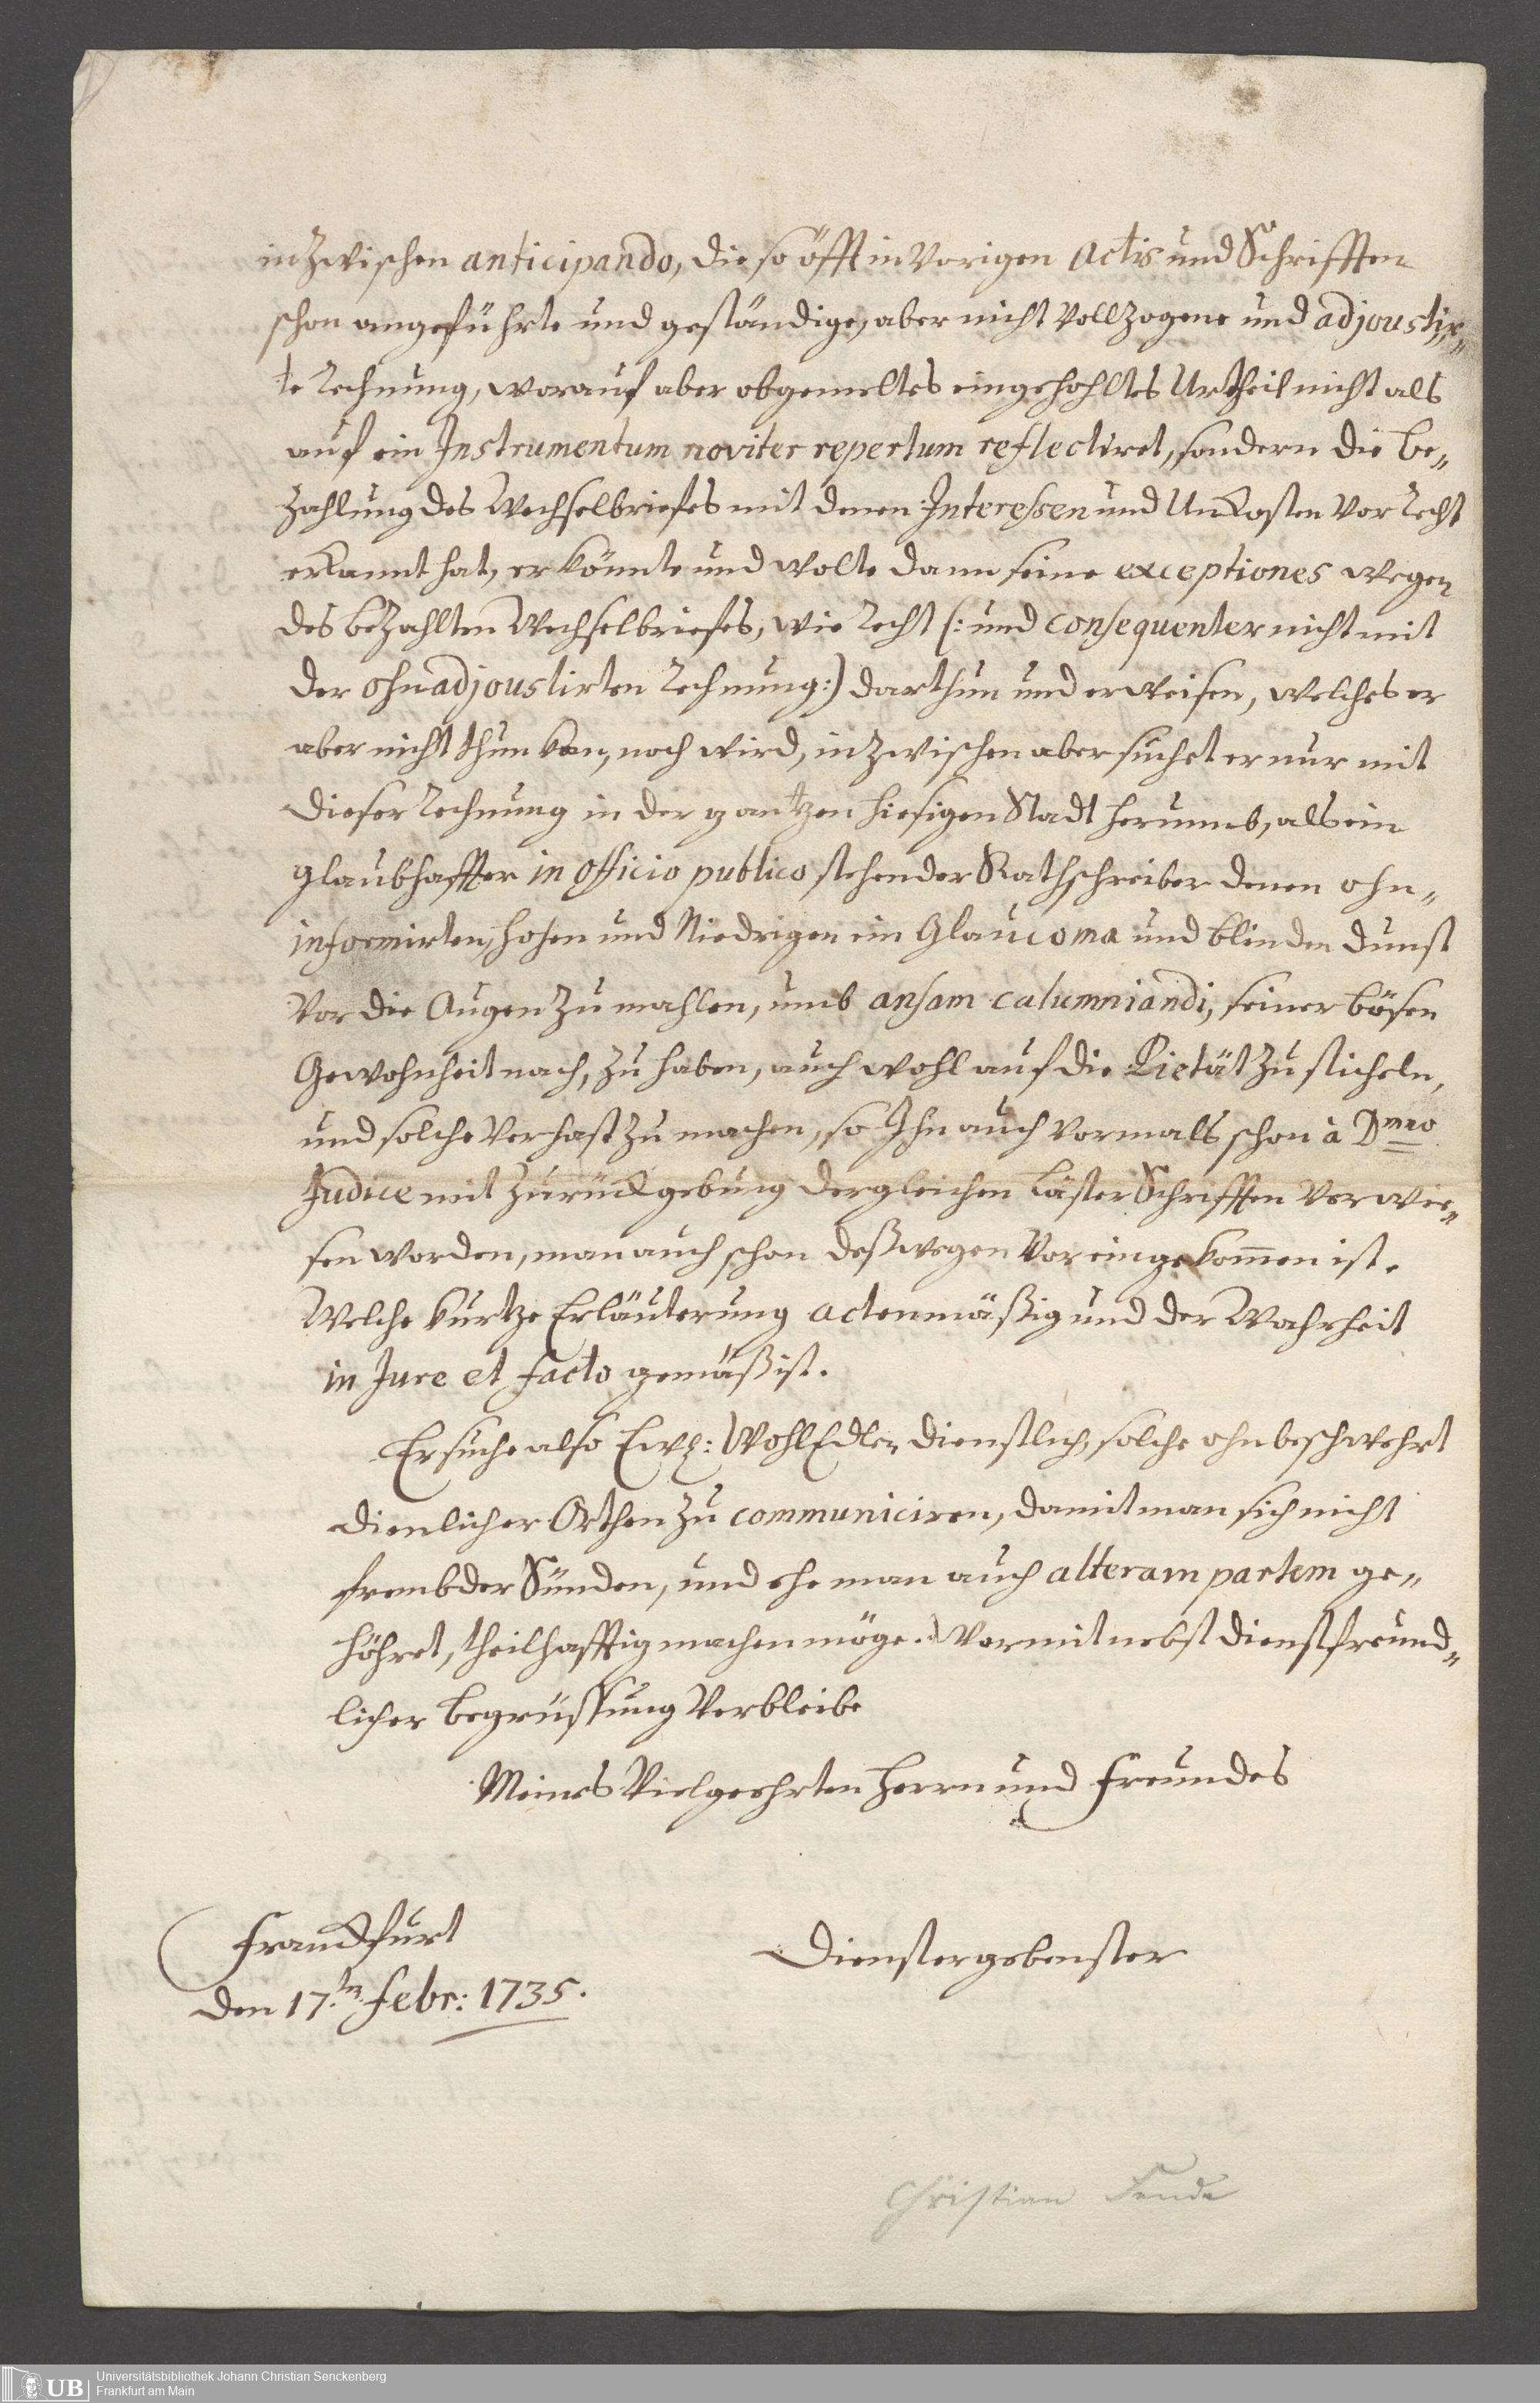 inzwischen anticipando, die so öfft in Vorigen Actis und Schrifften
schon angeführte und geständige, aber nicht Vollzogene und adjoustir„
te Rechnung, worauf aber obgemeltes eingehohltes Urtheil nicht als
auf ein Instrumentum noviter repertum reflectiret, sondern die be„
zahlung des Wechselbriefes mit denen Interessen und Unkosten Vor Recht
erkannt hat, er könnte und wolte dann seine exceptiones wegen
des bezahlten Wechselbriefes, wie Recht (: und consequenter nicht mit
der ohnadjoustirten Rechnung :) darthun und erweisen, welches er
aber nicht thun kan, noch wird, inzwischen aber suchet er nur mit
dieser Rechnung in der gantzen hiesigen Stadt herumb, als ein
glaubhaffter in officio publico stehender Rathschreiber denen ohn„
informirten, hohen und Niedrigen ein Glaucoma und blinden Dunst
Vor die Augen zu mahlen, umb ansam calumniandi, seiner bösen
Gewohnheit nach, zu haben, auch wohl auf die Pietät zu sticheln,
und solche Verhast zu machen, so Ihn auch Vormals schon à Dmno
Judice mit Zurückgebung dergleichen Läster Schrifften Verwie„
sen worden, man auch schon deßwegen Vor eingekommen ist.
Welche kurtze Erläuterung actenmäßig und der Wahrheit
in Jure et facto gemäß ist.
Ersuche also Ewh: WohlEdler dienstlich, solche ohnbeschwehrt
dienlicher Orthen zu communiciren, damit man sich nicht
frembder Sünden, und ehe man auch alteram partem ge„
höhret, theilhafftig machen möge. Wormit nebst dienstfreund„
licher begrüssung Verbleibe
Meines Vielgeehrten Herrn und Freundes
Franckfurt
den 17.tn Febr: 1735.
Dienstergebenster
Christian Fende
UB Universitätsbibliothek Johann Christian Senckenberg
Frankfurt am Main